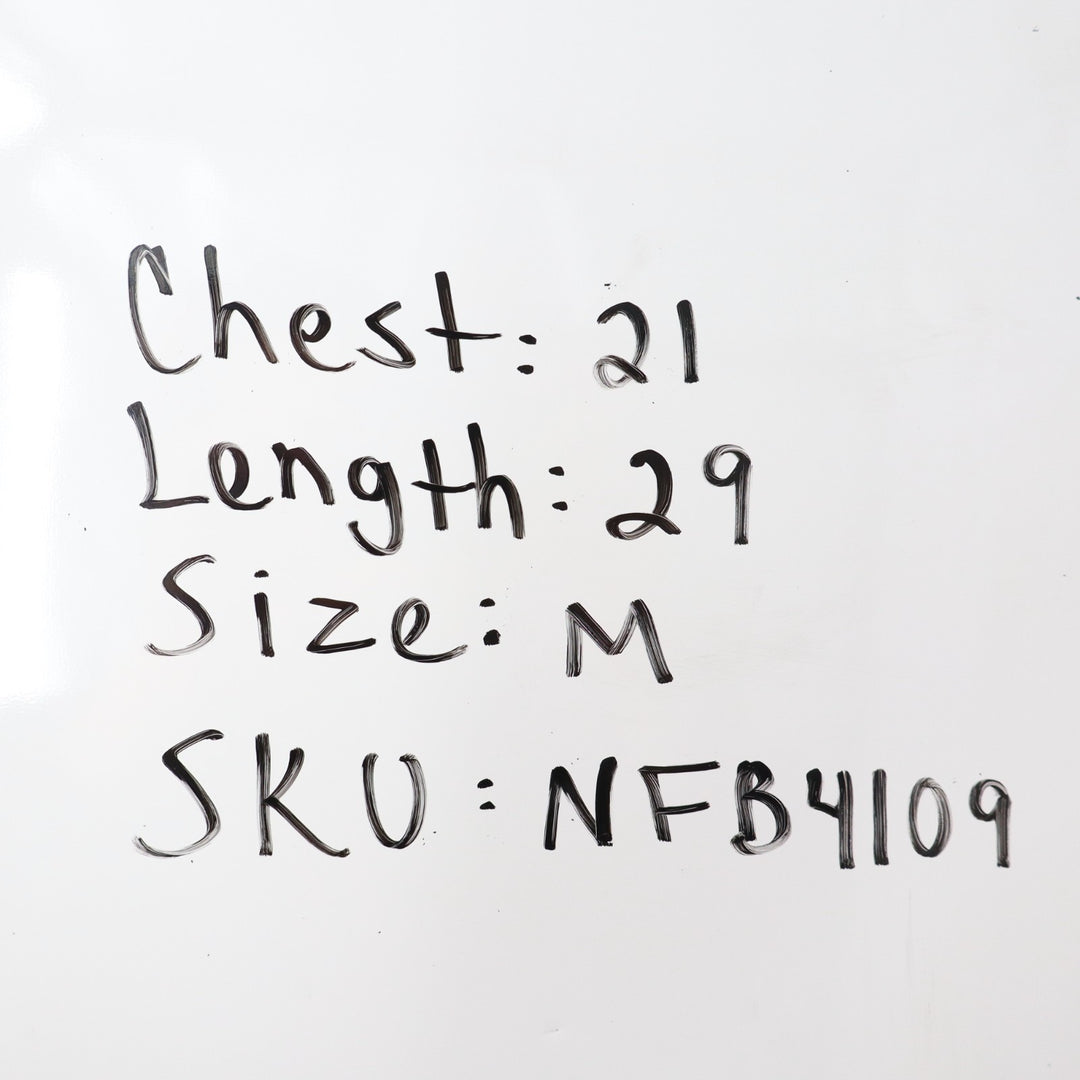 Chest: 21
Length: 29
Size: M
SKU: NFB4109